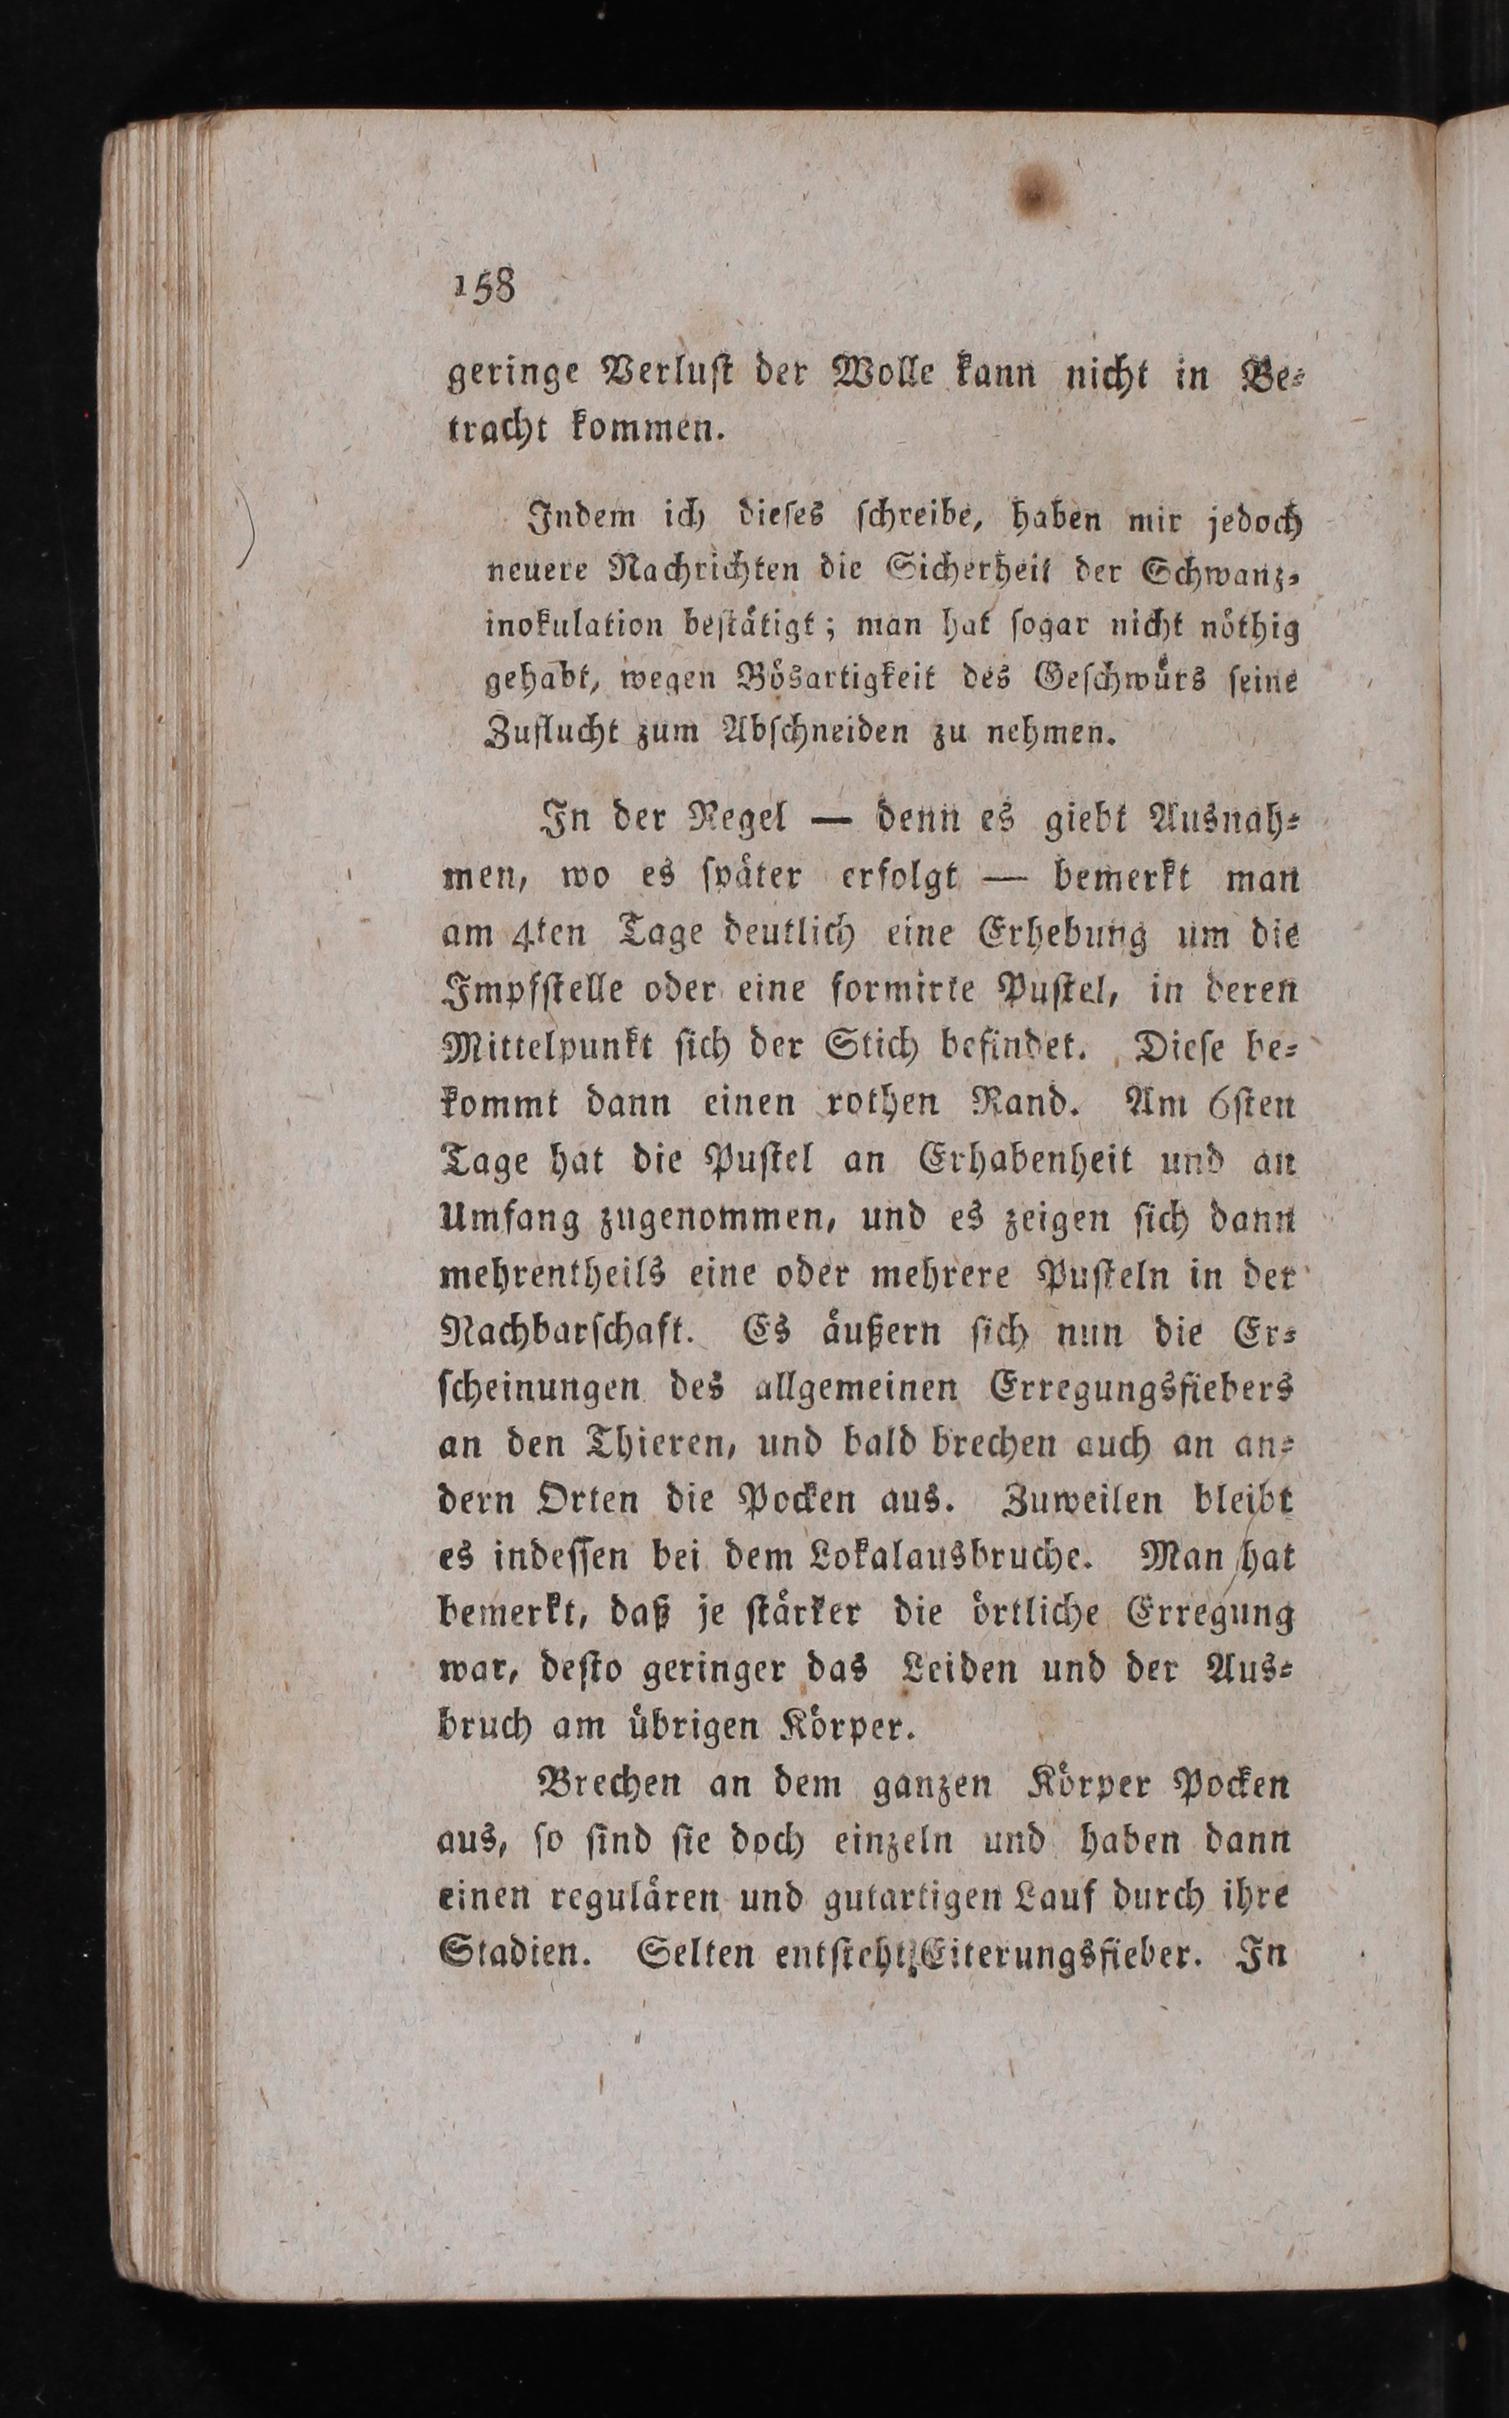 158
geringe Verluſt der Wolle kann nicht in Be⸗
tracht kommen.
Indem ich dieſes ſchreibe, haben mir jedoch
neuere Nachrichten die Sicherheit der Schwanz⸗
inokulation beſtätigt; man hat ſogar nicht nöthig
gehabt, wegen Bösartigkeit des Geſchwürs ſeine
Zuflucht zum Abſchneiden zu nehmen.
In der Regel — denn es giebt Ausnah⸗
men, wo es ſpäter erfolgt — bemerkt man
am 4ten Tage deutlich eine Erhebung um die
Impfſtelle oder eine formirte Puſtel, in deren
Mittelpunkt ſich der Stich befindet. Dieſe be⸗
kommt dann einen rothen Rand. Am 6ſten
Tage hat die Puſtel an Erhabenheit und an
Umfang zugenommen, und es zeigen ſich dann
mehrentheils eine oder mehrere Puſteln in der
Nachbarſchaft. Es äußern ſich nun die Er⸗
ſcheinungen des allgemeinen Erregungsfiebers
an den Thieren, und bald brechen auch an an⸗
dern Orten die Pocken aus. Zuweilen bleibt
es indeſſen bei dem Lokalausbruche. Man hat
bemerkt, daß je ſtärker die örtliche Erregung
war, deſto geringer das Leiden und der Aus⸗
bruch am übrigen Körper.
Brechen an dem ganzen Körper Pocken
aus, ſo ſind ſie doch einzeln und haben dann
einen regulären und gutartigen Lauf durch ihre
Stadien. Selten entſteht Eiterungsfieber. In